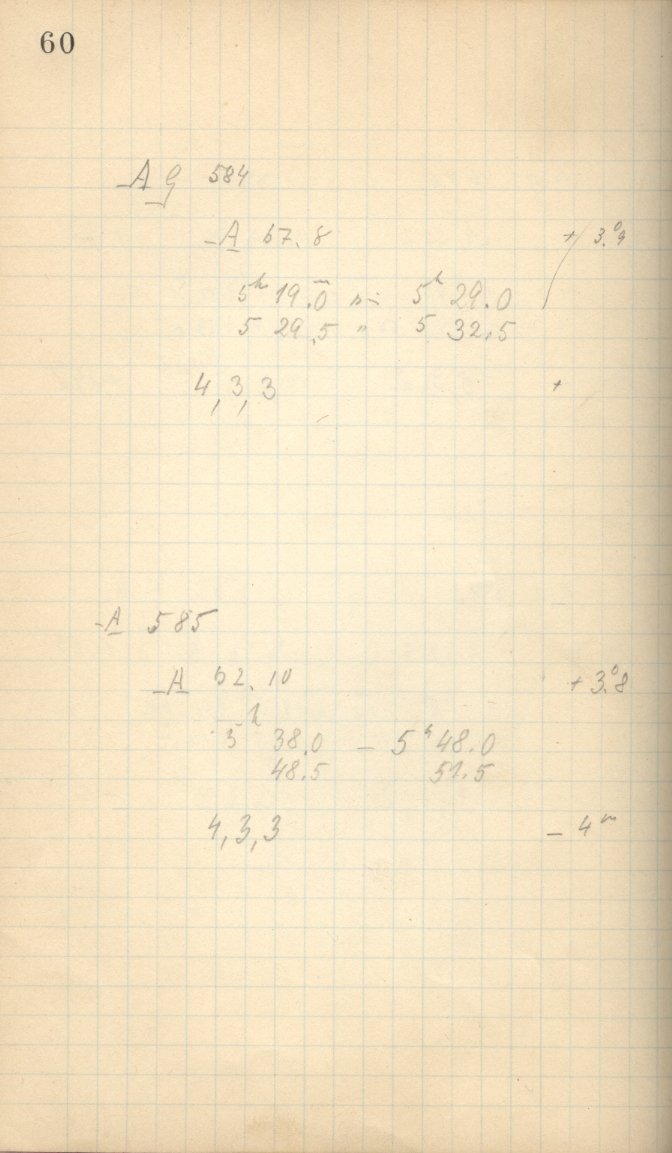 60
A G 584
A 67.8 + 3.°9
5ʰ 19.ᵐ0 – 5ʰ 29.0
5 29.5 " 5 32.5
4, 3, 3 +
A 585
A 62.10 + 3.°8
5ʰ 38.0 – 5ʰ 48.0
48.5 51.5
4, 3, 3 – 4ᵐ